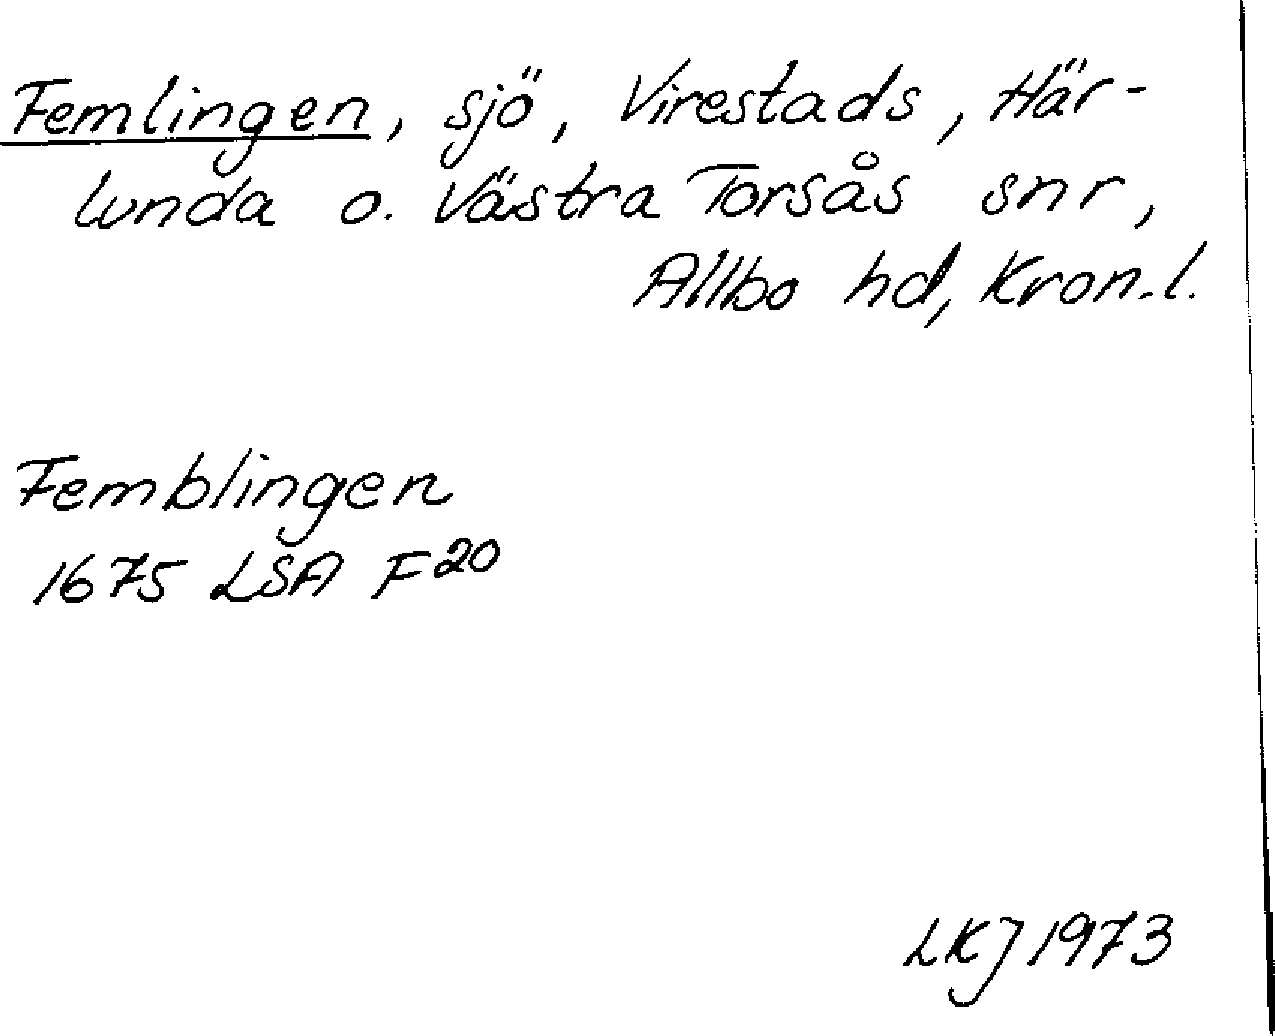 Femlingen, sjö, Virestads, Här-
lunda o. Västra Torsås snr,
Allbo hd, Kron.l.
Femblingen
1675 LSA F20
LKJ 1973